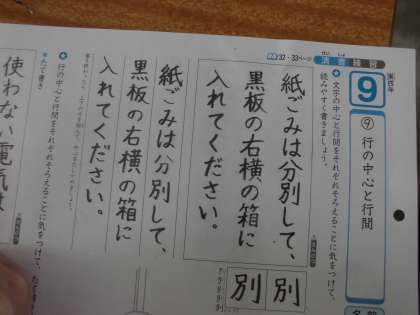 32・33ページ
演習 練習
9
⑨ 行の中心と行間
文字の中心と行間をそれぞれそろえることに気をつけて、
読みやすく書きましょう。
紙ごみは分別して、
黒板の右横の箱に
入れてください。
別 別
紙ごみは分別して、
黒板の右横の箱に
入れてください。
行の中心と行間をそれぞれそろえることに気をつけて、
使わない電気は